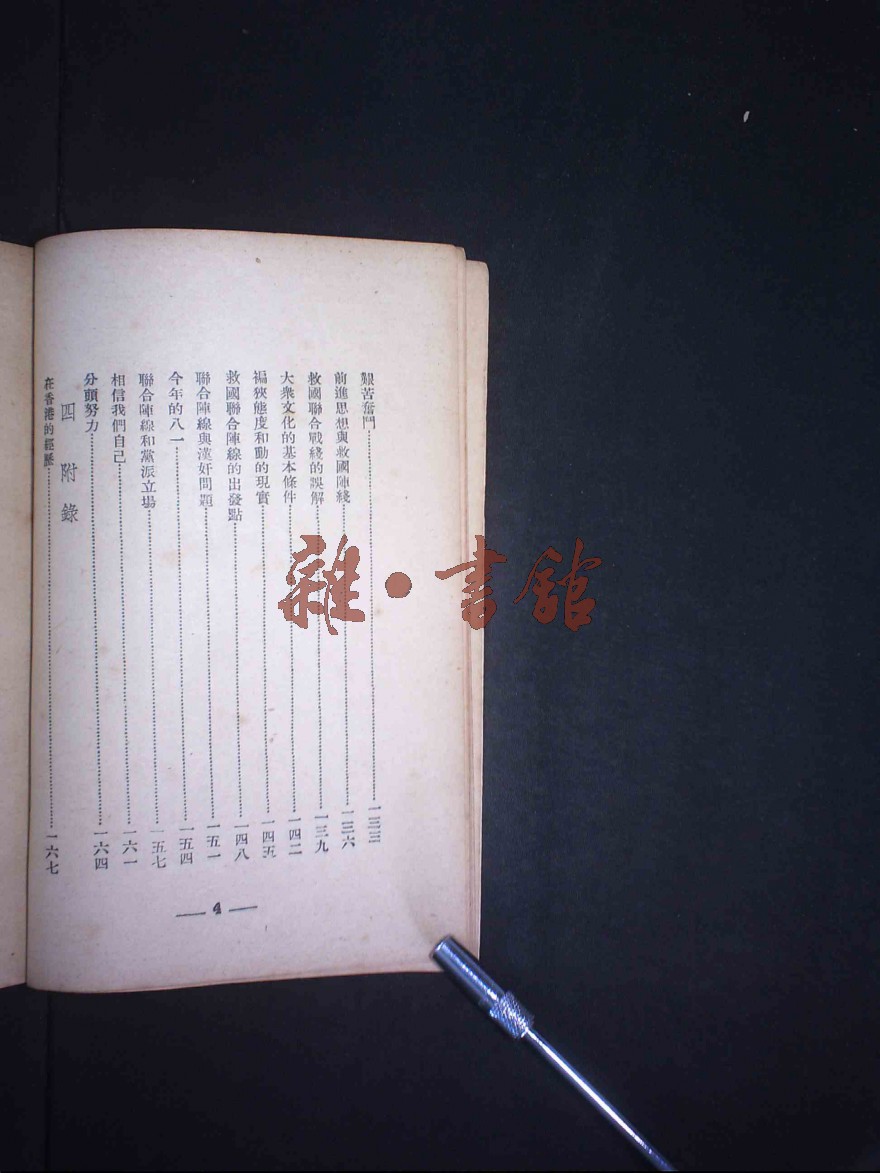 艱苦奮鬥……一三三
前進思想與救國陣綫……一三六
救國聯合戰綫的誤解……一三九
大衆文化的基本條件……一四二
褊狹態度和動的現實……一四五
救國聯合陣線的出發點……一四八
聯合陣線與漢奸問題……一五一
今年的八一……一五四
聯合陣線和黨派立場……一五七
相信我們自己……一六一
分頭努力……一六四
四 附錄
在香港的經歷……一六七
— 4 —
雜·書館